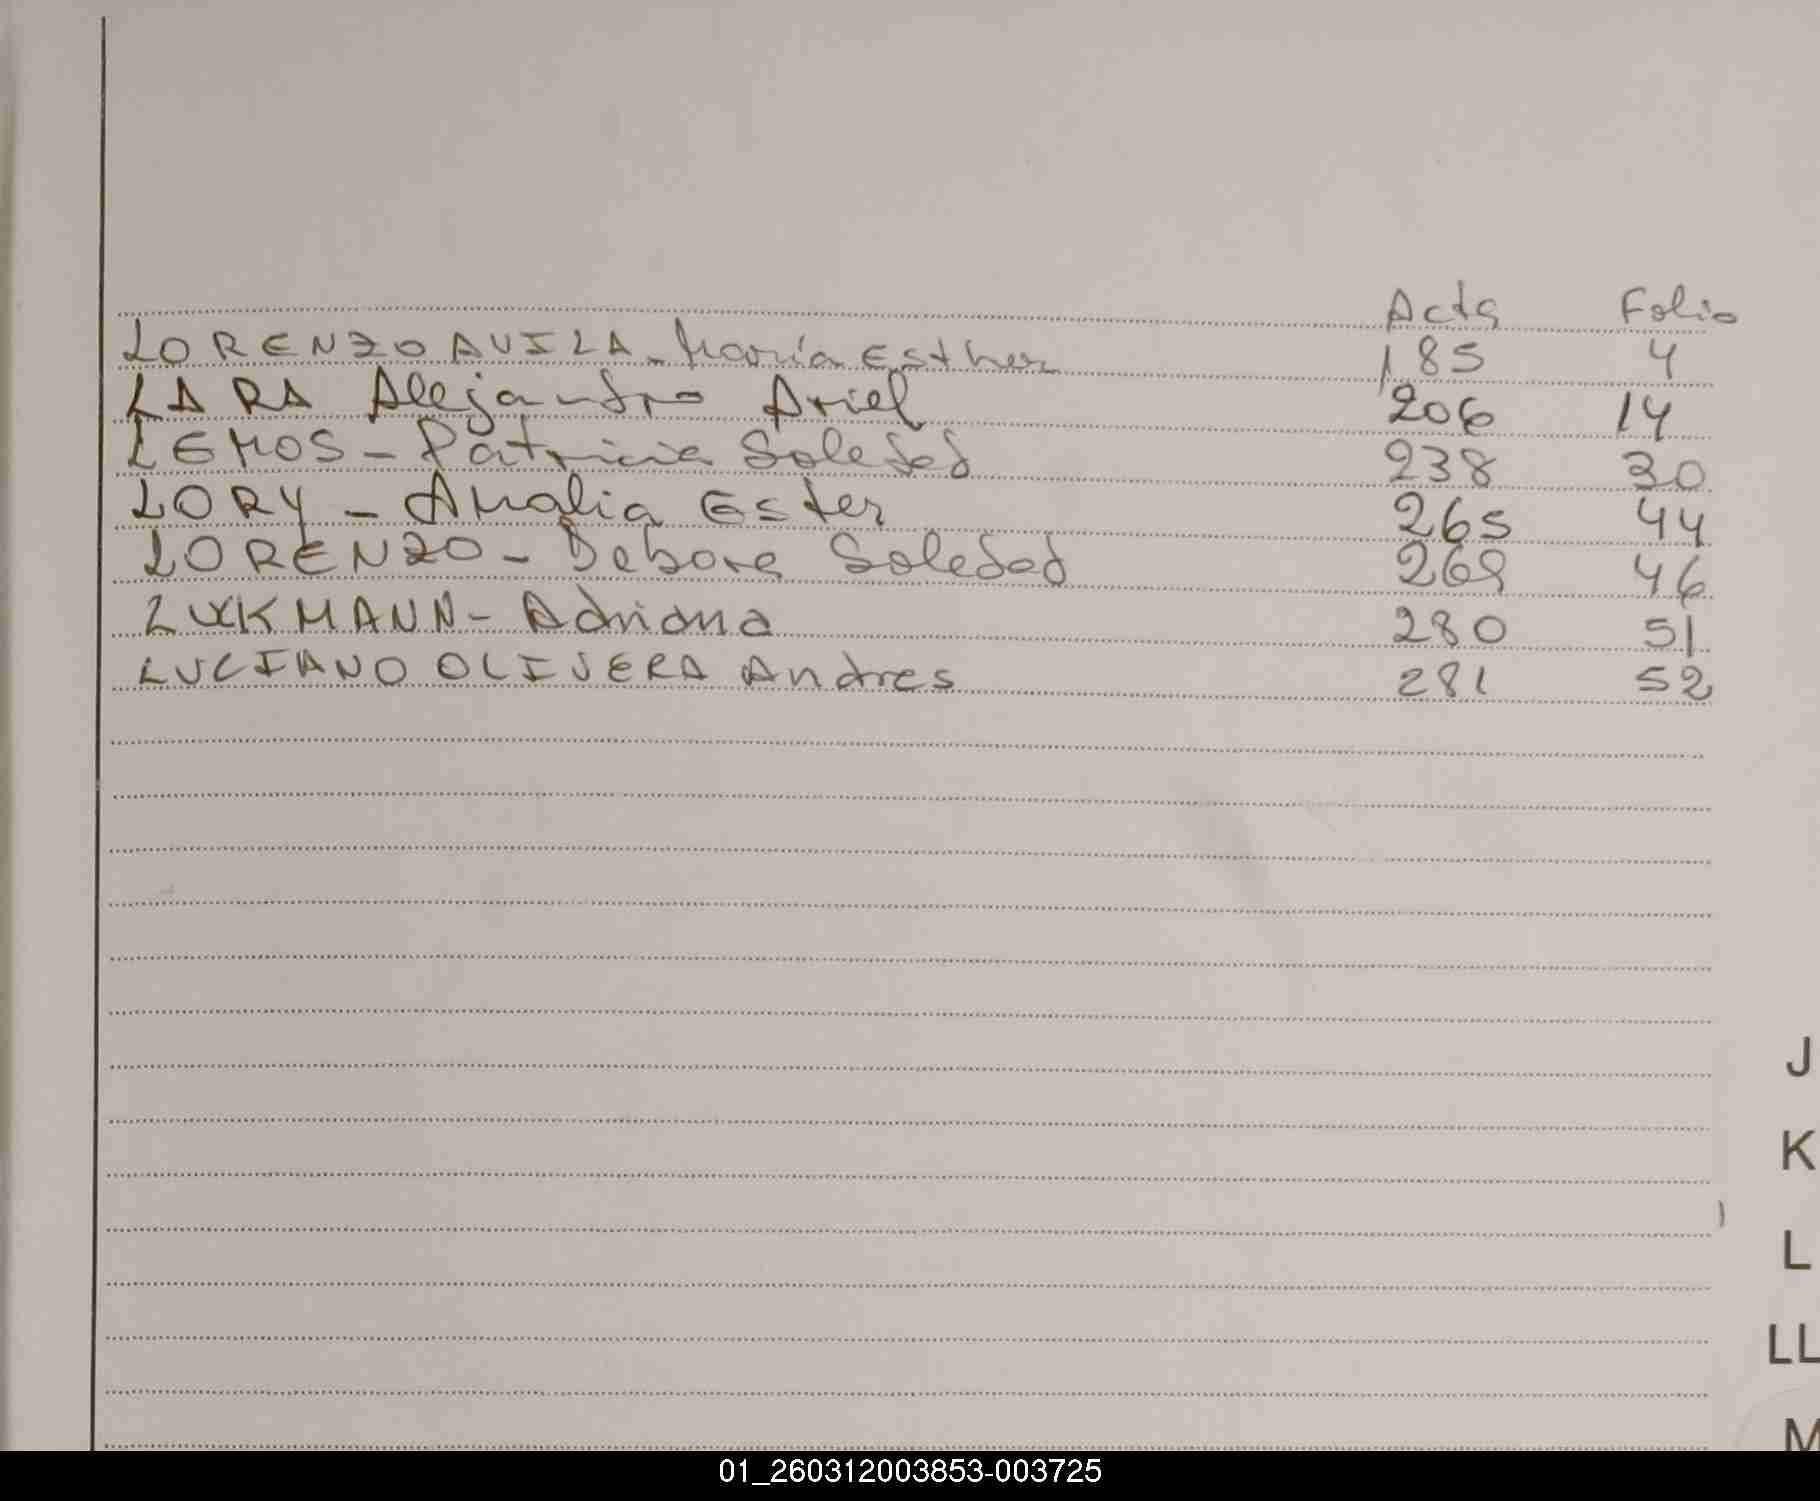 Acta Folio
LORENZO AVILA - María Esther 185 4
LARA Alejandro Ariel 206 14
LEMOS - Patricia Soledad 238 30
LORY - Analia Ester 265 44
LORENZO - Debora Soledad 269 46
LUCKMANN - Adriana 280 51
LUCIANO OLIVERA Andres 281 52
J
K
L
LL
M
01_260312003853-003725